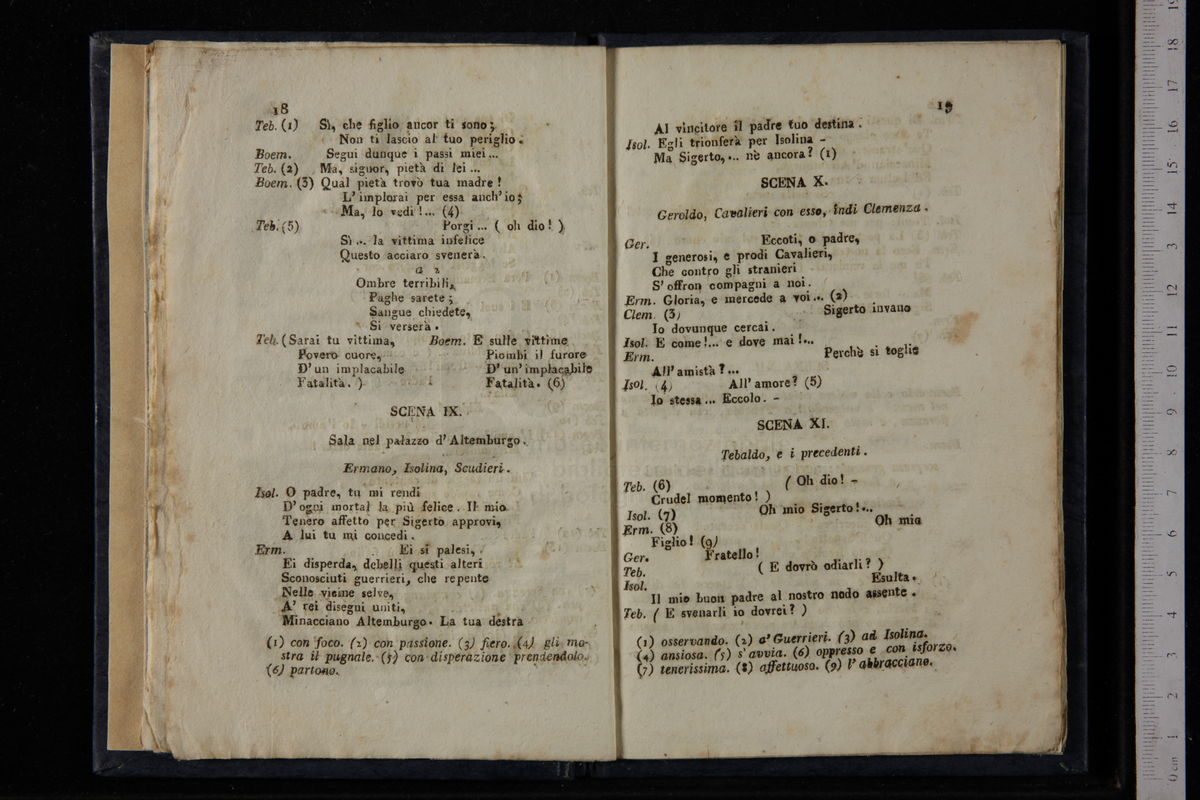 18
Teb. (1) Sì, che figlio ancor ti sono;
Non ti lascio al tuo periglio.
Boem. Segui dunque i passi miei...
Teb. (2) Ma, signor, pietà di lei...
Boem. (3) Qual pietà trovò tua madre!
L'implorai per essa anch'io;
Ma, lo vedi!... (4)
Teb. (5) Porgi... ( oh dio! )
Sì... la vittima infelice
Questo acciaro svenerà.
a 2
Ombre terribili,
Paghe sarete;
Sangue chiedete,
Si verserà.
Teb. (Sarai tu vittima, Boem. E sulle vittime
Povero cuore, Piombi il furore
D'un implacabile D'un' implacabile
Fatalità. ) Fatalità. (6)
SCENA IX.
Sala nel palazzo d'Altemburgo.
Ermano, Isolina, Scudieri.
Isol. O padre, tu mi rendi
D'ogni mortal la più felice. Il mio
Tenero affetto per Sigerto approvi,
A lui tu mi concedi.
Erm. Ei si palesi,
Ei disperda, debelli questi alteri
Sconosciuti guerrieri, che repente
Nelle vicine selve,
A' rei disegni uniti,
Minacciano Altemburgo. La tua destra
(1) con foco. (2) con passione. (3) fiero. (4) gli mo-
stra il pugnale. (5) con disperazione prendendolo.
(6) partono.
19
Al vincitore il padre tuo destina.
Isol. Egli trionferà per Isolina -
Ma Sigerto,... nè ancora? (1)
SCENA X.
Geroldo, Cavalieri con esso, indi Clemenza.
Ger. Eccoti, o padre,
I generosi, e prodi Cavalieri,
Che contro gli stranieri
S'offron compagni a noi.
Erm. Gloria, e mercede a voi... (2)
Clem. (3) Sigerto invano
Io dovunque cercai.
Isol. E come!... e dove mai!...
Erm. Perchè si toglie
All'amistà?...
Isol. (4) All'amore? (5)
Io stessa... Eccolo. -
SCENA XI.
Tebaldo, e i precedenti.
Teb. (6) ( Oh dio! -
Crudel momento! )
Isol. (7) Oh mio Sigerto!...
Erm. (8) Oh mio
Figlio! (9)
Ger. Fratello!
Teb. ( E dovrò odiarli? )
Isol. Esulta.
Il mio buon padre al nostro nodo assente.
Teb. ( E svenarli io dovrei? )
(1) osservando. (2) a' Guerrieri. (3) ad Isolina.
(4) ansiosa. (5) s'avvia. (6) oppresso e con isforzo.
(7) tenerissima. (8) affettuoso. (9) l'abbracciano.
0 cm 1 2 3 4 5 6 7 8 9 10 11 12 13 14 15 16 17 18 19